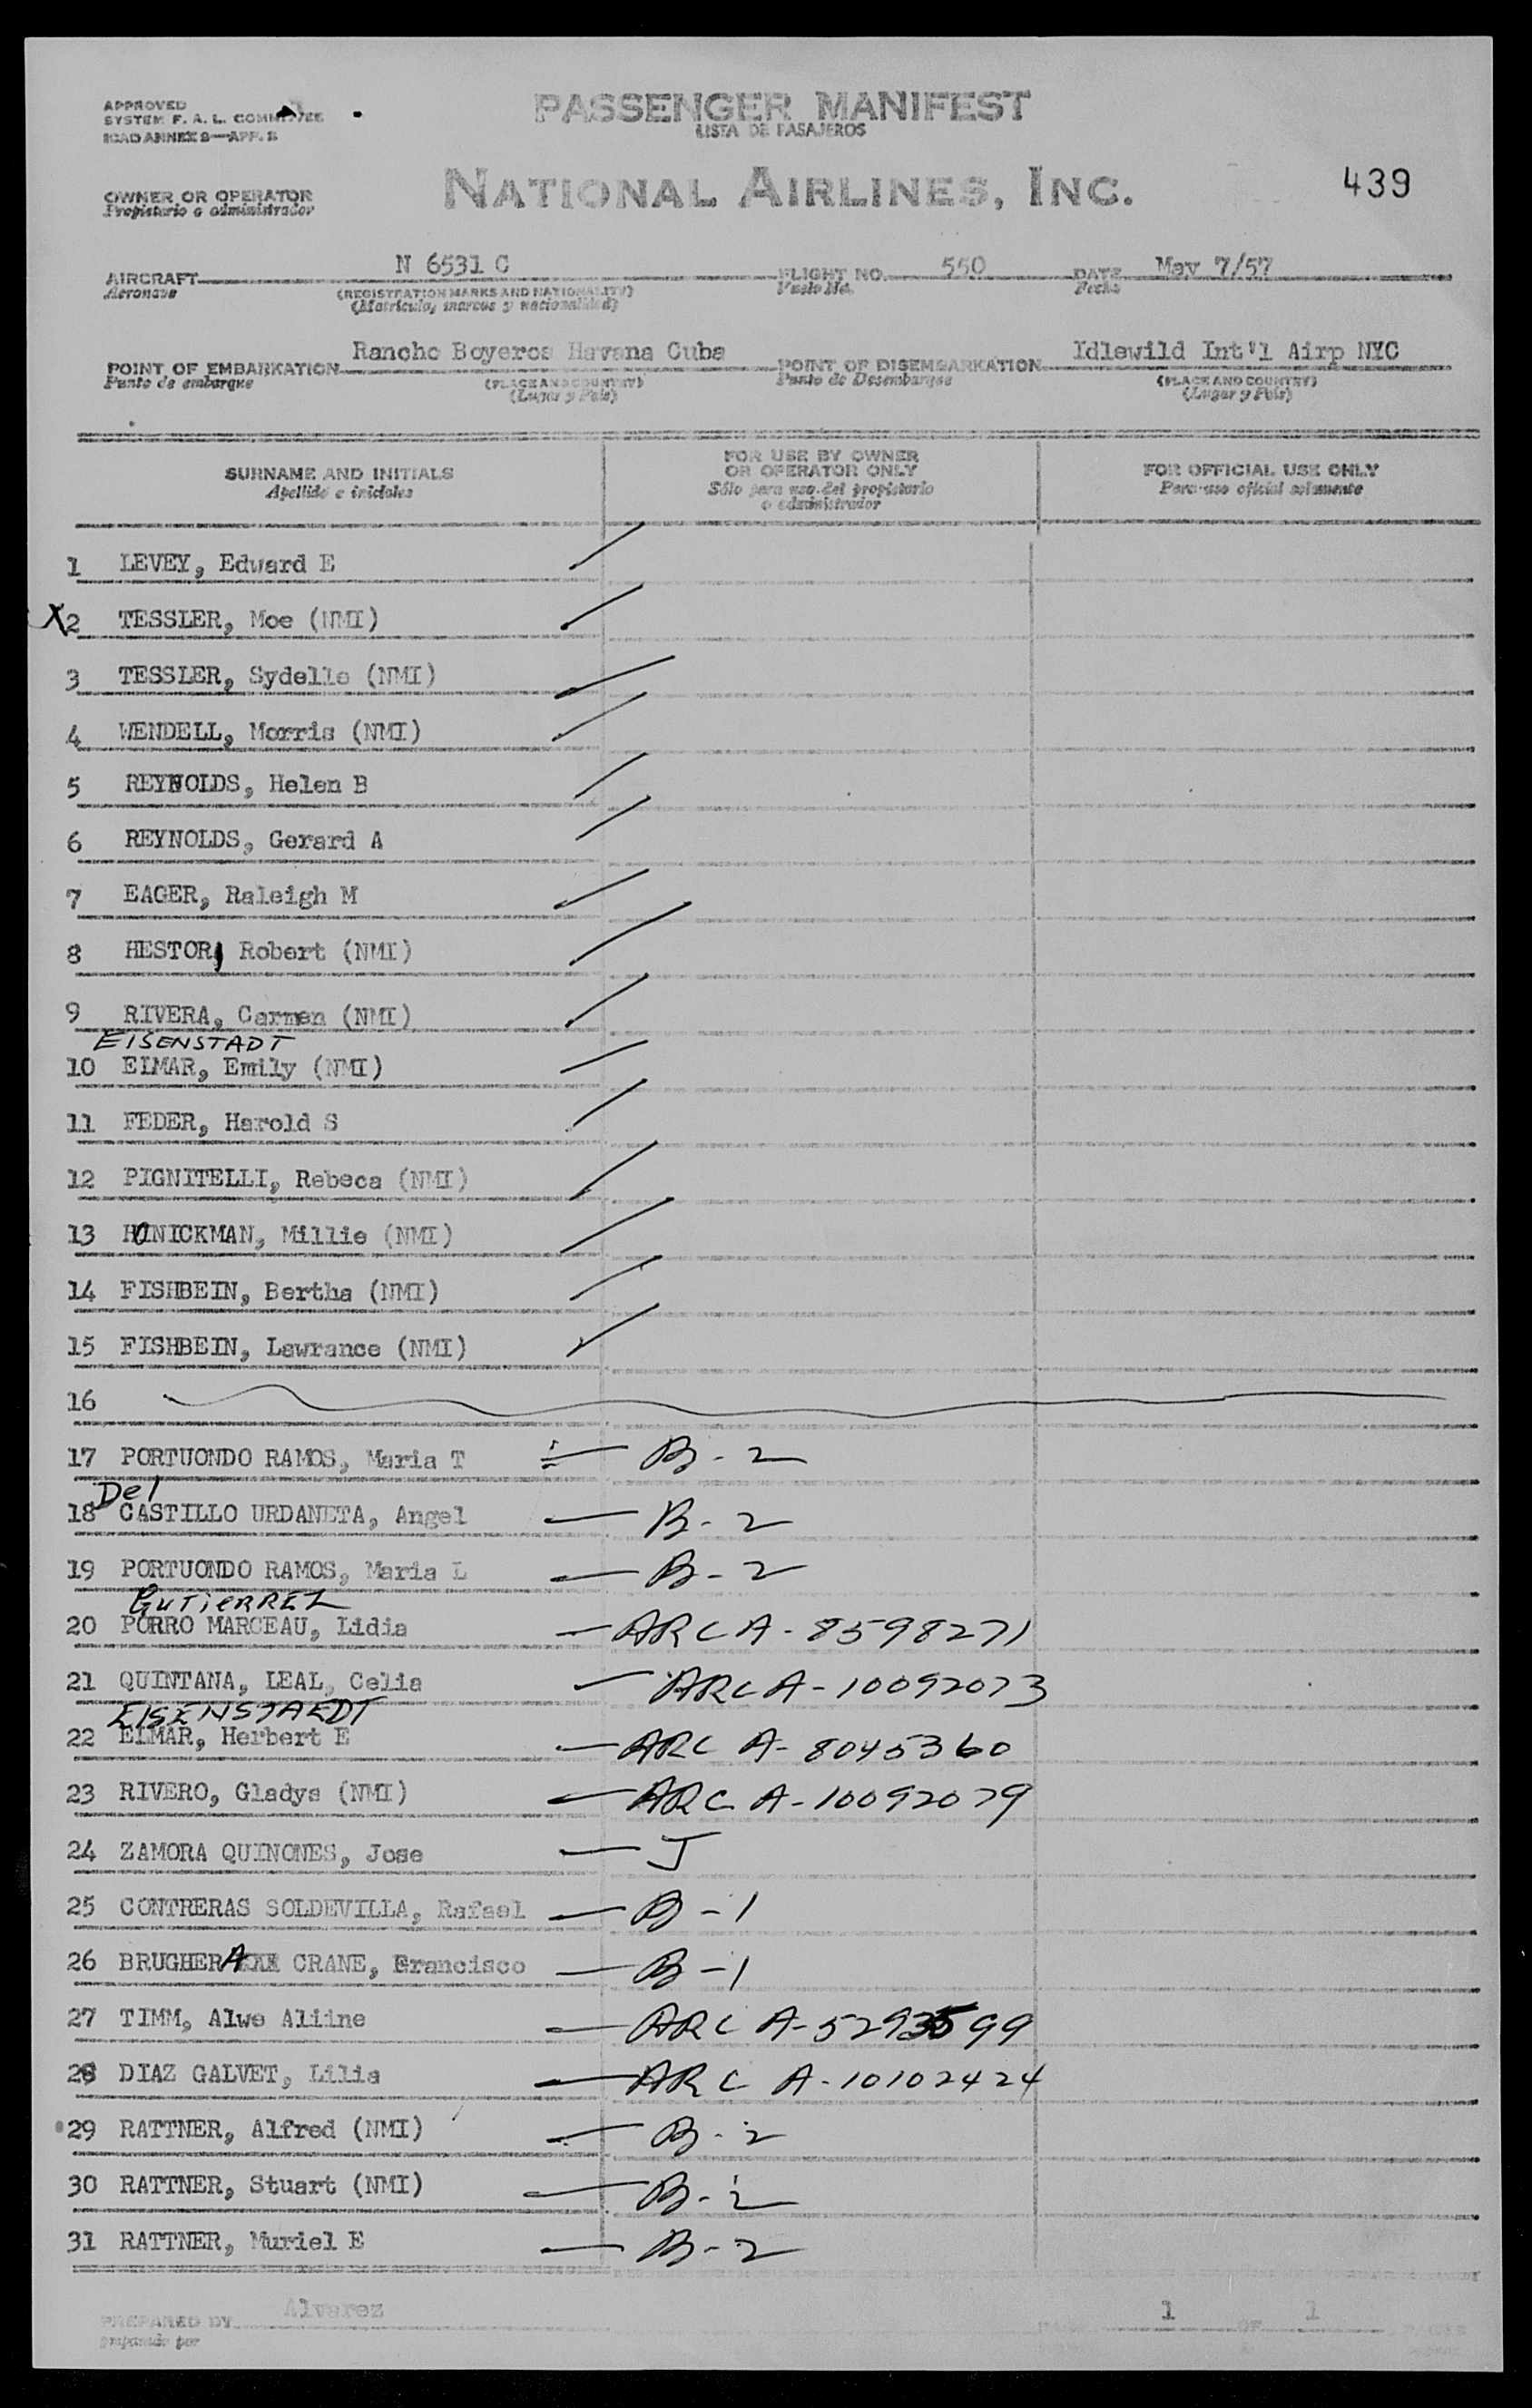 APPROVED
SYSTEM F. A. L. COMMITTEE
ICAO ANNEX 9—APP. 5
PASSENGER MANIFEST
LISTA DE PASAJEROS
OWNER OR OPERATOR
Propietario o administrador
NATIONAL AIRLINES, INC.
439
AIRCRAFT N 6531 C FLIGHT NO. 550 DATE May 7/57
Aeronave (REGISTRATION MARKS AND NATIONALITY) Vuelo No. Fecha
(Matricula, marcas y nacionalidad)
POINT OF EMBARKATION Rancho Boyeros Havana Cuba POINT OF DISEMBARKATION Idlewild Int'l Airp NYC
Punto de embarque (PLACE AND COUNTRY) Punto de Desembarque (PLACE AND COUNTRY)
(Lugar y Pais) (Lugar y Pais)
SURNAME AND INITIALS
Apellido e iniciales
FOR USE BY OWNER
OR OPERATOR ONLY
Sólo para uso del propietario
o administrador
FOR OFFICIAL USE ONLY
Para uso oficial solamente
1 LEVEY, Edward E
X2 TESSLER, Moe (NMI)
3 TESSLER, Sydelle (NMI)
4 WENDELL, Morris (NMI)
5 REYNOLDS, Helen B
6 REYNOLDS, Gerard A
7 EAGER, Raleigh M
8 HESTOR, Robert (NMI)
9 RIVERA, Carmen (NMI)
EISENSTADT
10 ELMAR, Emily (NMI)
11 FEDER, Harold S
12 PIGNITELLI, Rebeca (NMI)
13 HONICKMAN, Millie (NMI)
14 FISHBEIN, Bertha (NMI)
15 FISHBEIN, Lawrance (NMI)
16
17 PORTUONDO RAMOS, Maria T B-2
Del
18 CASTILLO URDANETA, Angel B-2
19 PORTUONDO RAMOS, Maria L B-2
GUTIERREZ
20 PORRO MARCEAU, Lidia ARC A-8598271
21 QUINTANA, LEAL, Celia ARC A-10092073
EISENSTAEDT
22 ELMAR, Herbert E ARC A-8045360
23 RIVERO, Gladys (NMI) ARC A-10092079
24 ZAMORA QUINONES, Jose J
25 CONTRERAS SOLDEVILLA, Rafael B-1
26 BRUGHERA CRANE, Francisco B-1
27 TIMM, Alwe Aliine ARC A-5293599
28 DIAZ GALVET, Lilia ARC A-10102424
29 RATTNER, Alfred (NMI) B-2
30 RATTNER, Stuart (NMI) B-2
31 RATTNER, Muriel E B-2
PREPARED BY Alvarez
preparado por
1 OF 1 PAGES